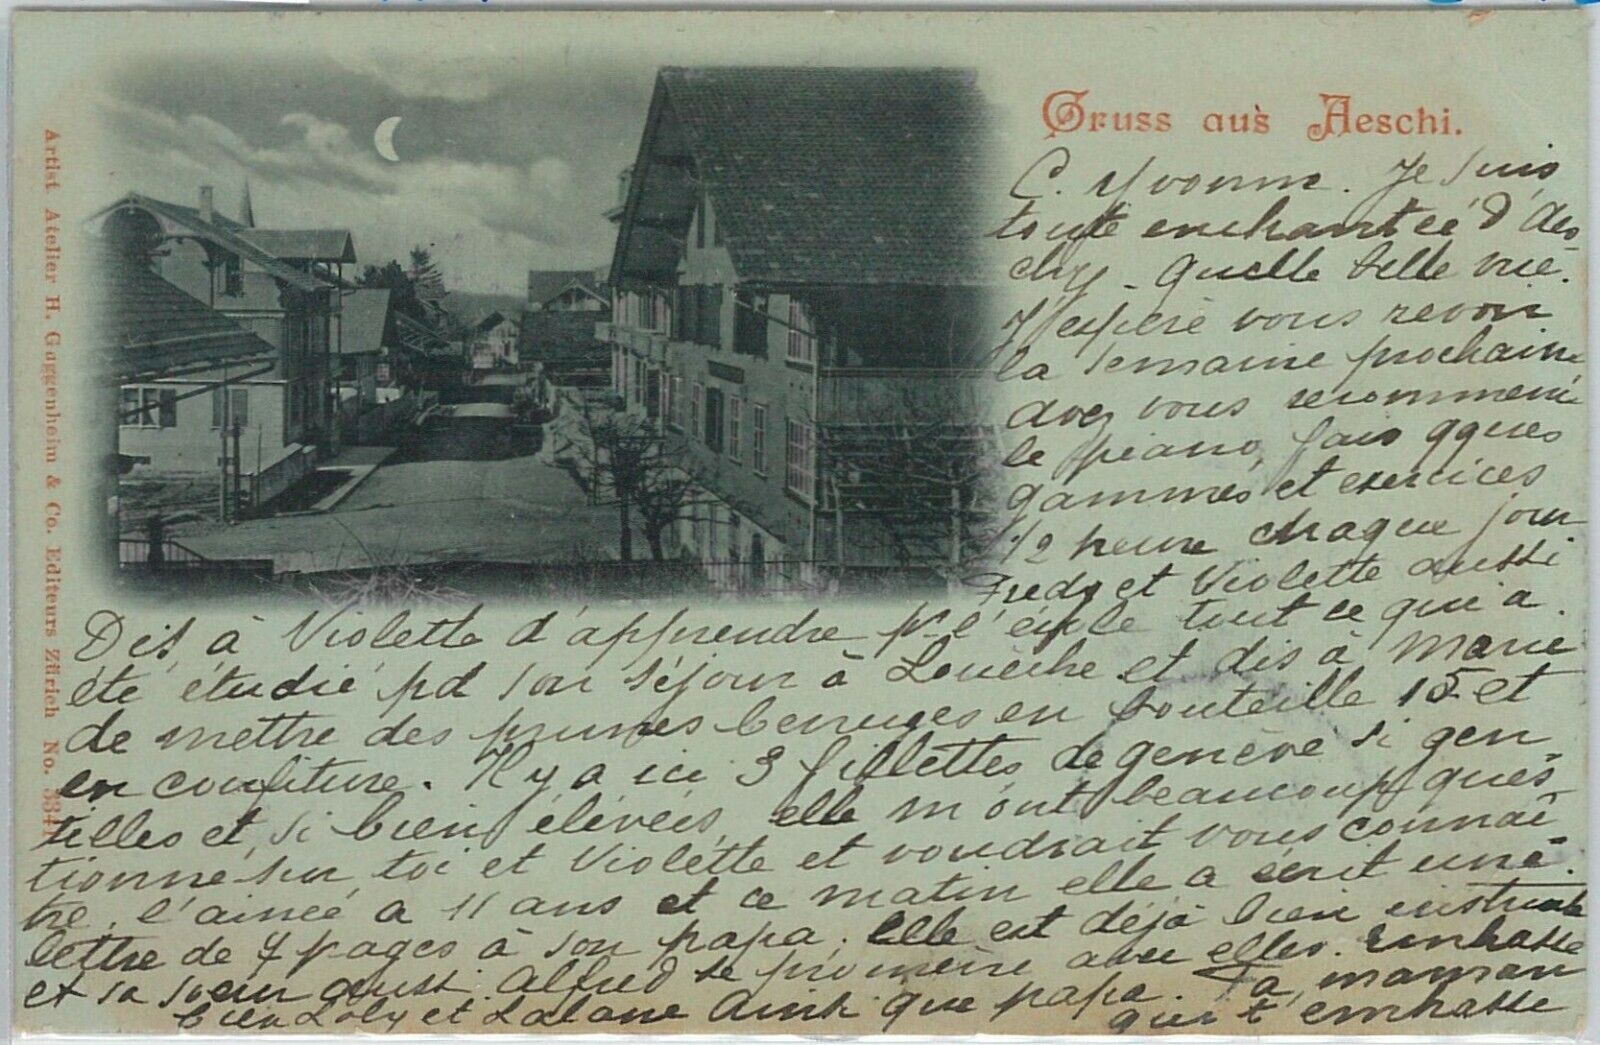 Gruss aus Aeschi.
Artist Atelier H. Guggenheim & Co. Editeurs Zürich No. 3341
C. Yvonne. Je suis
toute enchantée d'Aes-
chy. Quelle belle vue.
J'espère vous revoir
la semaine prochaine
avez vous recommencé
le piano, fais qques
gammes et exercices
1/2 heure chaque jour
Fredy et Violette aussi
Dis à Violette d'apprendre pr l'école tout ce qui a
été étudié pd son séjour à Louèche et dis à Marie
de mettre des prunes berruges en bouteille 15 et
en confiture. Il y a ici 3 fillettes de genève si gen-
tilles et si bien élévées, elle m'ont beaucoup ques-
tionné sur toi et Violette et voudrait vous connaî-
tre, l'ainée a 11 ans et ce matin elle a écrit une
lettre de 7 pages à son papa. Elle est déjà bien instruite
et sa soeur aussi. Alfred se promène avec elles. Embrasse
bien Loly et Lalane ainsi que papa. Ta maman
qui t'embrasse